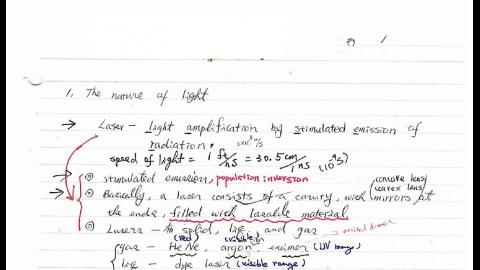 1
1. The nature of light
→ Laser – Light amplification by stimulated emission of
radiation. 3×10⁸ m/s
speed of light = 1 ft/ns = 30.5 cm/1 ns (10⁻⁹s)
→ ⊙ stimulated emission, population inversion
→ ⊙ Basically, a laser consists of a cavity, with mirrors at (concave lens / convex lens)
the ends, filled with lasable material
⊙ Lasers – in solid, liq, and gas → excited dimer
gas – HeNe (red), argon (visible), excimer (UV range)
liq – dye laser (visible range)